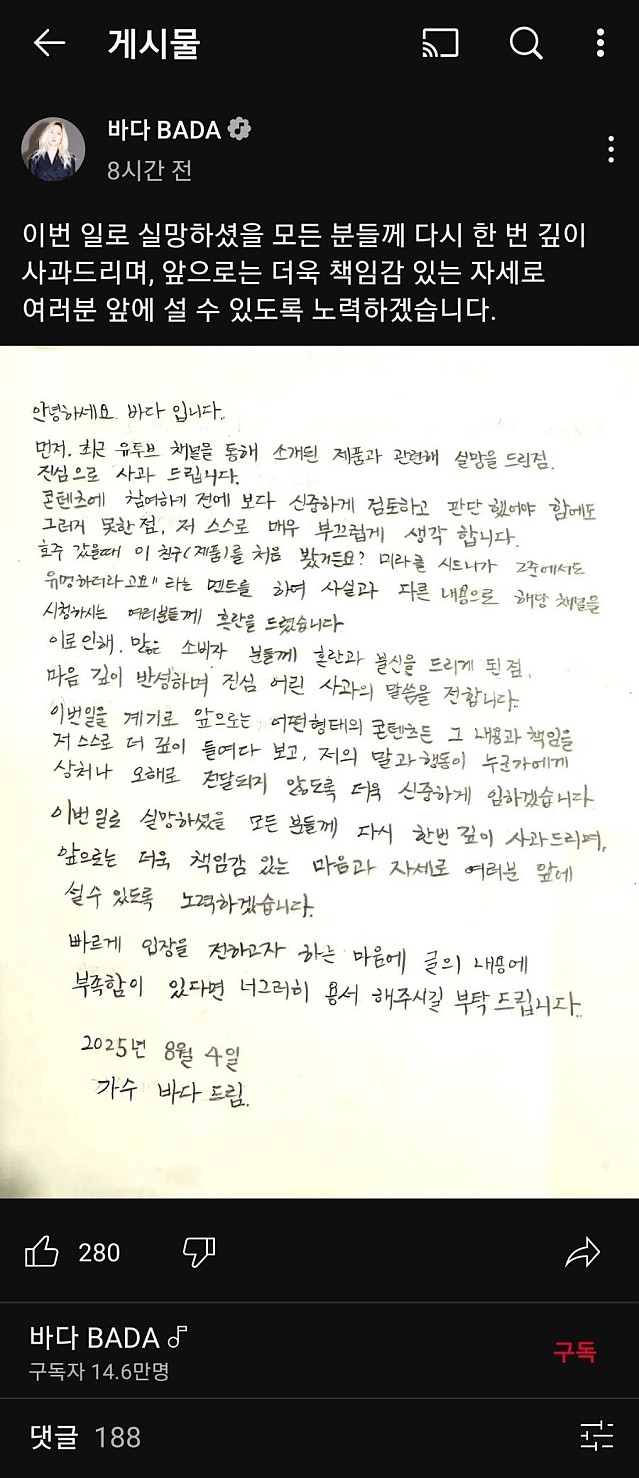 게시물
바다 BADA
8시간 전
이번 일로 실망하셨을 모든 분들께 다시 한 번 깊이
사과드리며, 앞으로는 더욱 책임감 있는 자세로
여러분 앞에 설 수 있도록 노력하겠습니다.
안녕하세요. 바다 입니다.
먼저, 최근 유투브 채널을 통해 소개된 제품과 관련해 실망을 드린점,
진심으로 사과 드립니다.
콘텐츠에 참여하기 전에 보다 신중하게 검토하고 판단 했어야 함에도
그러지 못한 점, 저 스스로 매우 부끄럽게 생각 합니다.
호주 갔을때 이 친구(제품)를 처음 봤거든요? 미라클 시드니가 고준에서도
유명하더라고요" 라는 멘트를 하여 사실과 다른 내용으로 해당 채널을
시청하시는 여러분들께 혼란을 드렸습니다.
이로인해, 많은 소비자 분들께 혼란과 불신을 드리게 된 점,
마음 깊이 반성하며 진심 어린 사과의 말씀을 전합니다.
이번일을 계기로 앞으로는 어떤형태의 콘텐츠든 그 내용과 책임을
저 스스로 더 깊이 들여다 보고, 저의 말과 행동이 누군가에게
상처나 오해로 전달되지 않도록 더욱 신중하게 임하겠습니다.
이번 일로 실망하셨을 모든 분들께 다시 한번 깊이 사과드리며,
앞으로는 더욱 책임감 있는 마음과 자세로 여러분 앞에
설 수 있도록 노력하겠습니다.
빠르게 입장을 전하고자 하는 마음에 글의 내용에
부족함이 있다면 너그러히 용서 해주시길 부탁 드립니다.
2025년 8월 4일
가수 바다 드림.
280
바다 BADA
구독자 14.6만명
구독
댓글 188